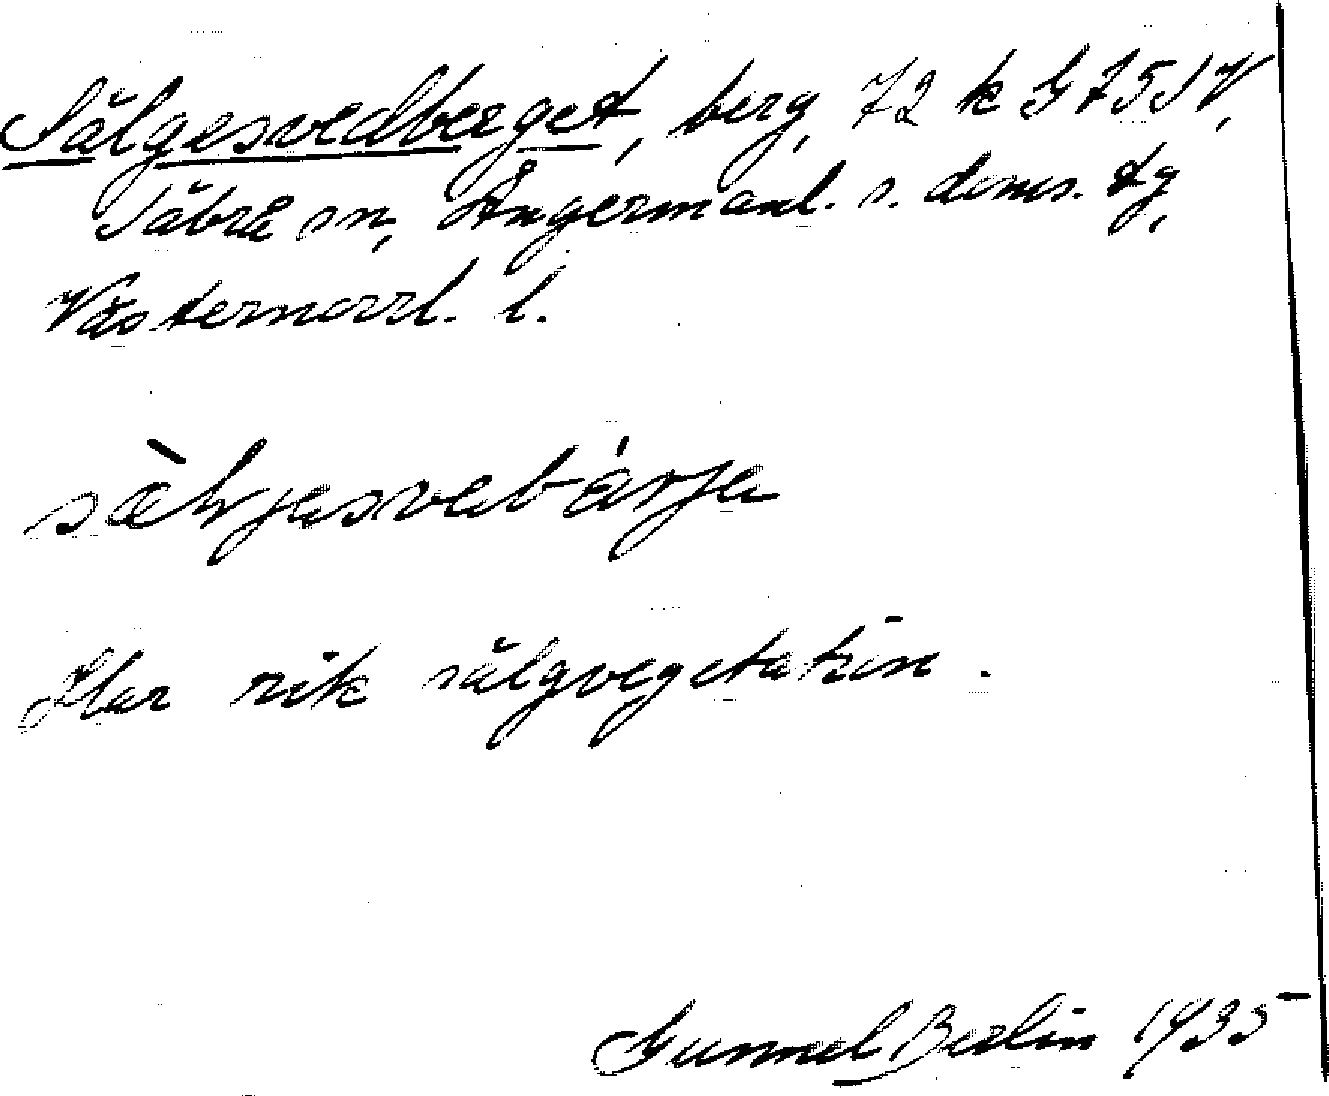 Sälgesvedberget, berg, 72 k G 75 SV,
Säbrå sn, Ångermanl. s. doms. tg,
Västernorrl. l.
sàlvjesvebárja
Har rik sälgvegetation.
Gunnel Berlin 1935